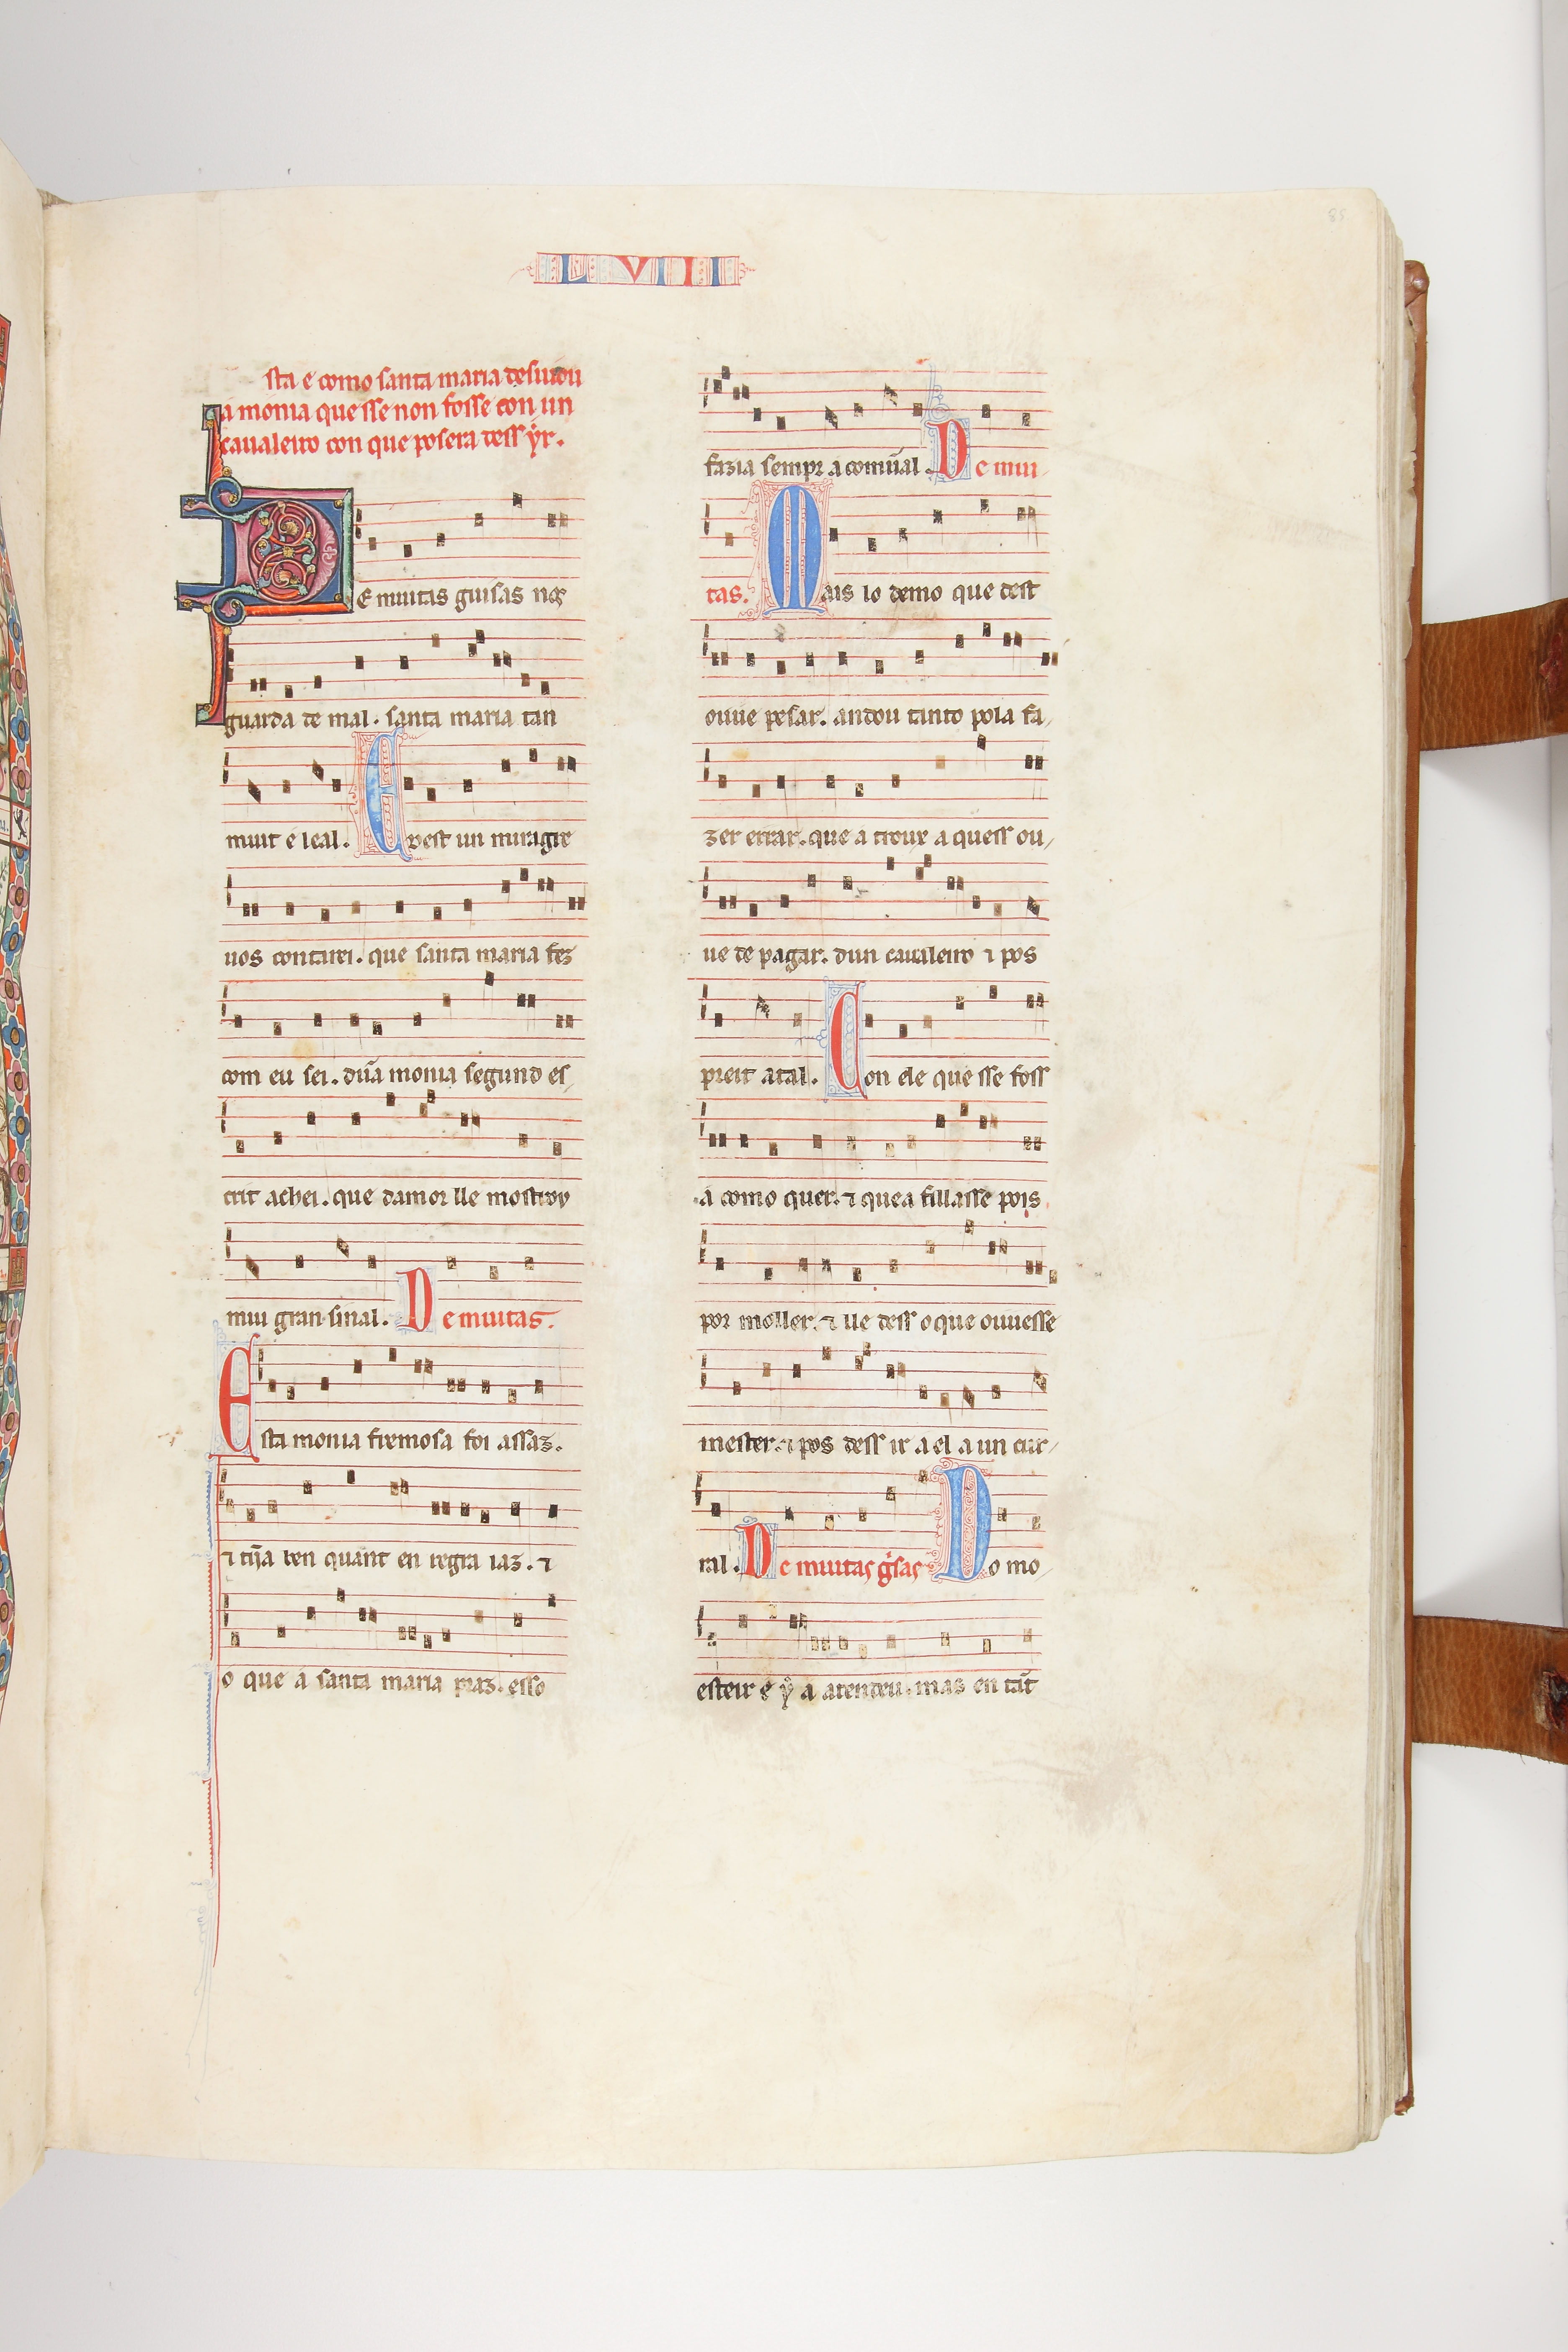 85
LVIII
sta e como santa maria desuiou
a monia que sse non fosse con un
caualeiro con que posera dess ẏr.
De muitas guisas nos
guarda de mal. santa maria tan
muit é leal. E dest un miragre
uos contarei. que santa maria fez
com eu sei. dũa monia segund es
crit achei. que damor lle mostrou
mui gran sinal. De muitas.
Esta monia fremosa foi assaz.
⁊ tĩja ben quant en regra iaz. ⁊
o que a santa maria praz. esso
fazia sempr a comũal. De mui
tas. Mais lo demo que dest
ouue pesar. andou tanto pola fa
zer errar. que a troux a quess ou
ue de pagar. dun caualeiro ⁊ pos
preit atal. Con ele que sse foss
a como quer. ⁊ que a fillasse pois
por moller. ⁊ lle dess o que ouuesse
mester. ⁊ pos dess ir a el a un cur
ral. De muitas gͥsas Do mo
esteir e ẏ a atendeu. mas en tãt